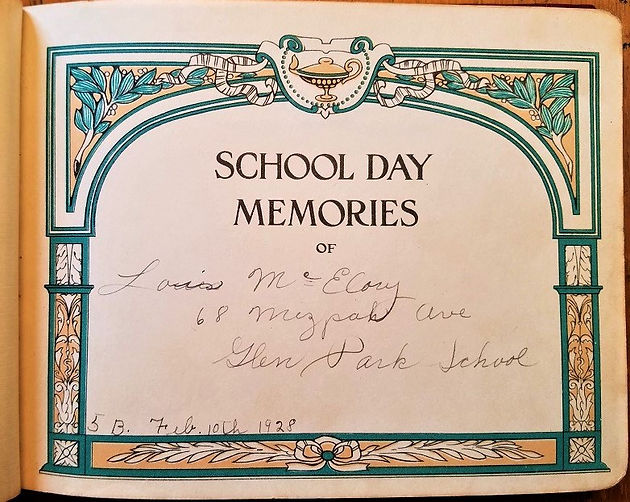 SCHOOL DAY
MEMORIES
OF
Louis McElroy
68 Mizpah Ave
Glen Park School
5 B. Feb. 10th 1928